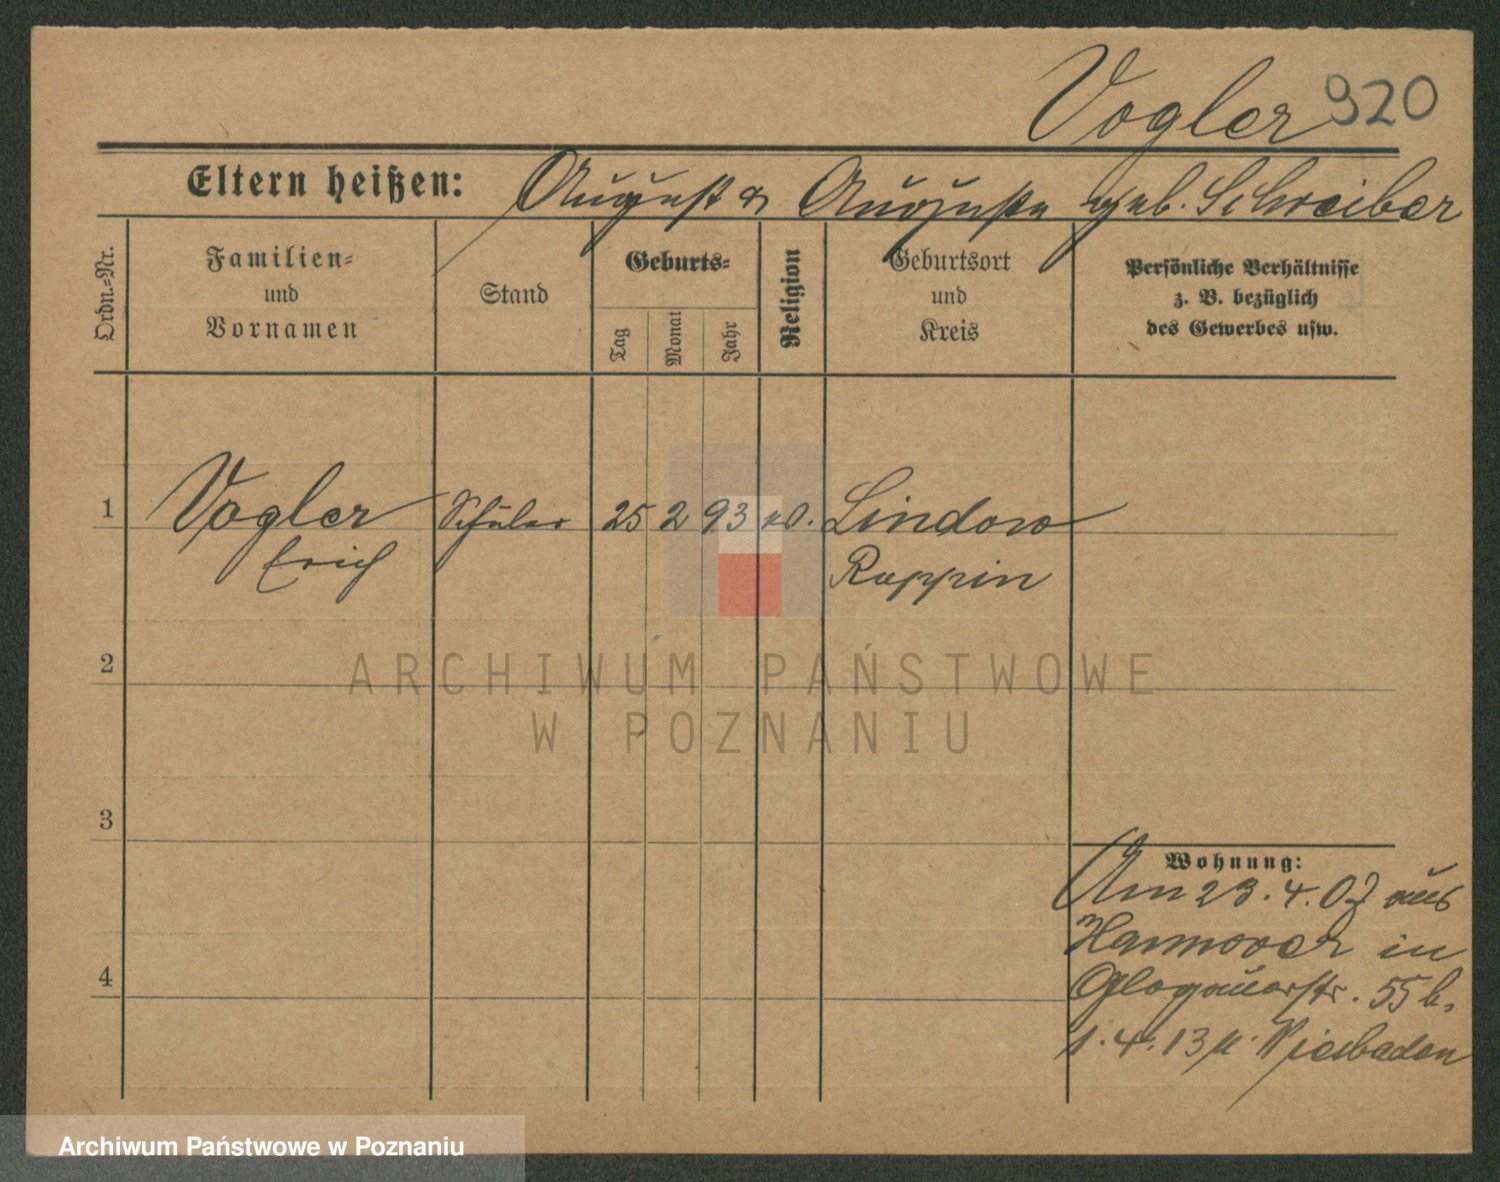 Vogler 920
Eltern heißen: August & Auguste geb. Schreiber
Ordn.-Nr.
Familien-
und
Vornamen
Stand
Geburts-
Tag
Monat
Jahr
Religion
Geburtsort
und
Kreis
Persönliche Verhältnisse
z. B. bezüglich
des Gewerbes usw.
1 Vogler Schüler 25 2 93 ev. Lindow
Erich Ruppin
2
3
4
Wohnung:
Am 23.4.07 aus
Hannover in
Glogauerstr. 55 b.
1.4.13 n. Wiesbaden
ARCHIWUM PAŃSTWOWE
W POZNANIU
Archiwum Państwowe w Poznaniu